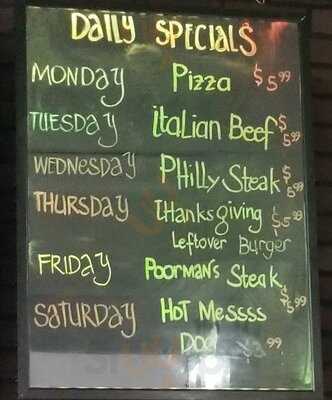 Daily Specials
Monday Pizza $5.99
Tuesday Italian Beef $5.99
Wednesday Philly Steak $5.99
Thursday Thanksgiving $5.99
Leftover Burger
Friday Poorman's Steak $5.99
Saturday Hot Messss
Dog $3.99